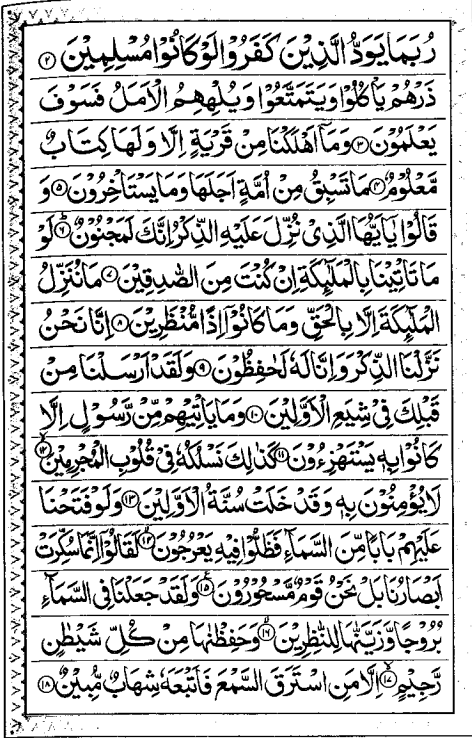 رُبَمَا يَوَدُّ الَّذِيْنَ كَفَرُوْا لَوْ كَانُوْا مُسْلِمِيْنَ ﴿۲﴾
ذَرْهُمْ يَاْكُلُوْا وَيَتَمَتَّعُوْا وَيُلْهِهِمُ الْاَمَلُ فَسَوْفَ
يَعْلَمُوْنَ ﴿۳﴾ وَمَاۤ اَهْلَكْنَا مِنْ قَرْيَةٍ اِلَّا وَلَهَا كِتَابٌ
مَّعْلُوْمٌ ﴿۴﴾ مَا تَسْبِقُ مِنْ اُمَّةٍ اَجَلَهَا وَمَا يَسْتَاْخِرُوْنَ ﴿۵﴾ وَ
قَالُوْا يٰۤاَيُّهَا الَّذِيْ نُزِّلَ عَلَيْهِ الذِّكْرُ اِنَّكَ لَمَجْنُوْنٌ ﴿۶﴾ لَوْ
مَا تَاْتِيْنَا بِالْمَلٰٓئِكَةِ اِنْ كُنْتَ مِنَ الصّٰدِقِيْنَ ﴿۷﴾ مَا نُنَزِّلُ
الْمَلٰٓئِكَةَ اِلَّا بِالْحَقِّ وَمَا كَانُوْۤا اِذًا مُّنْظَرِيْنَ ﴿۸﴾ اِنَّا نَحْنُ
نَزَّلْنَا الذِّكْرَ وَاِنَّا لَهٗ لَحٰفِظُوْنَ ﴿۹﴾ وَلَقَدْ اَرْسَلْنَا مِنْ
قَبْلِكَ فِيْ شِيَعِ الْاَوَّلِيْنَ ﴿۱۰﴾ وَمَا يَاْتِيْهِمْ مِّنْ رَّسُوْلٍ اِلَّا
كَانُوْا بِهٖ يَسْتَهْزِءُوْنَ ﴿۱۱﴾ كَذٰلِكَ نَسْلُكُهٗ فِيْ قُلُوْبِ الْمُجْرِمِيْنَ ﴿۱۲﴾
لَا يُؤْمِنُوْنَ بِهٖ وَقَدْ خَلَتْ سُنَّةُ الْاَوَّلِيْنَ ﴿۱۳﴾ وَلَوْ فَتَحْنَا
عَلَيْهِمْ بَابًا مِّنَ السَّمَآءِ فَظَلُّوْا فِيْهِ يَعْرُجُوْنَ ﴿۱۴﴾ لَقَالُوْۤا اِنَّمَا سُكِّرَتْ
اَبْصَارُنَا بَلْ نَحْنُ قَوْمٌ مَّسْحُوْرُوْنَ ﴿۱۵﴾ وَلَقَدْ جَعَلْنَا فِي السَّمَآءِ
بُرُوْجًا وَّزَيَّنّٰهَا لِلنّٰظِرِيْنَ ﴿۱۶﴾ وَحَفِظْنٰهَا مِنْ كُلِّ شَيْطٰنٍ
رَّجِيْمٍ ﴿۱۷﴾ اِلَّا مَنِ اسْتَرَقَ السَّمْعَ فَاَتْبَعَهٗ شِهَابٌ مُّبِيْنٌ ﴿۱۸﴾